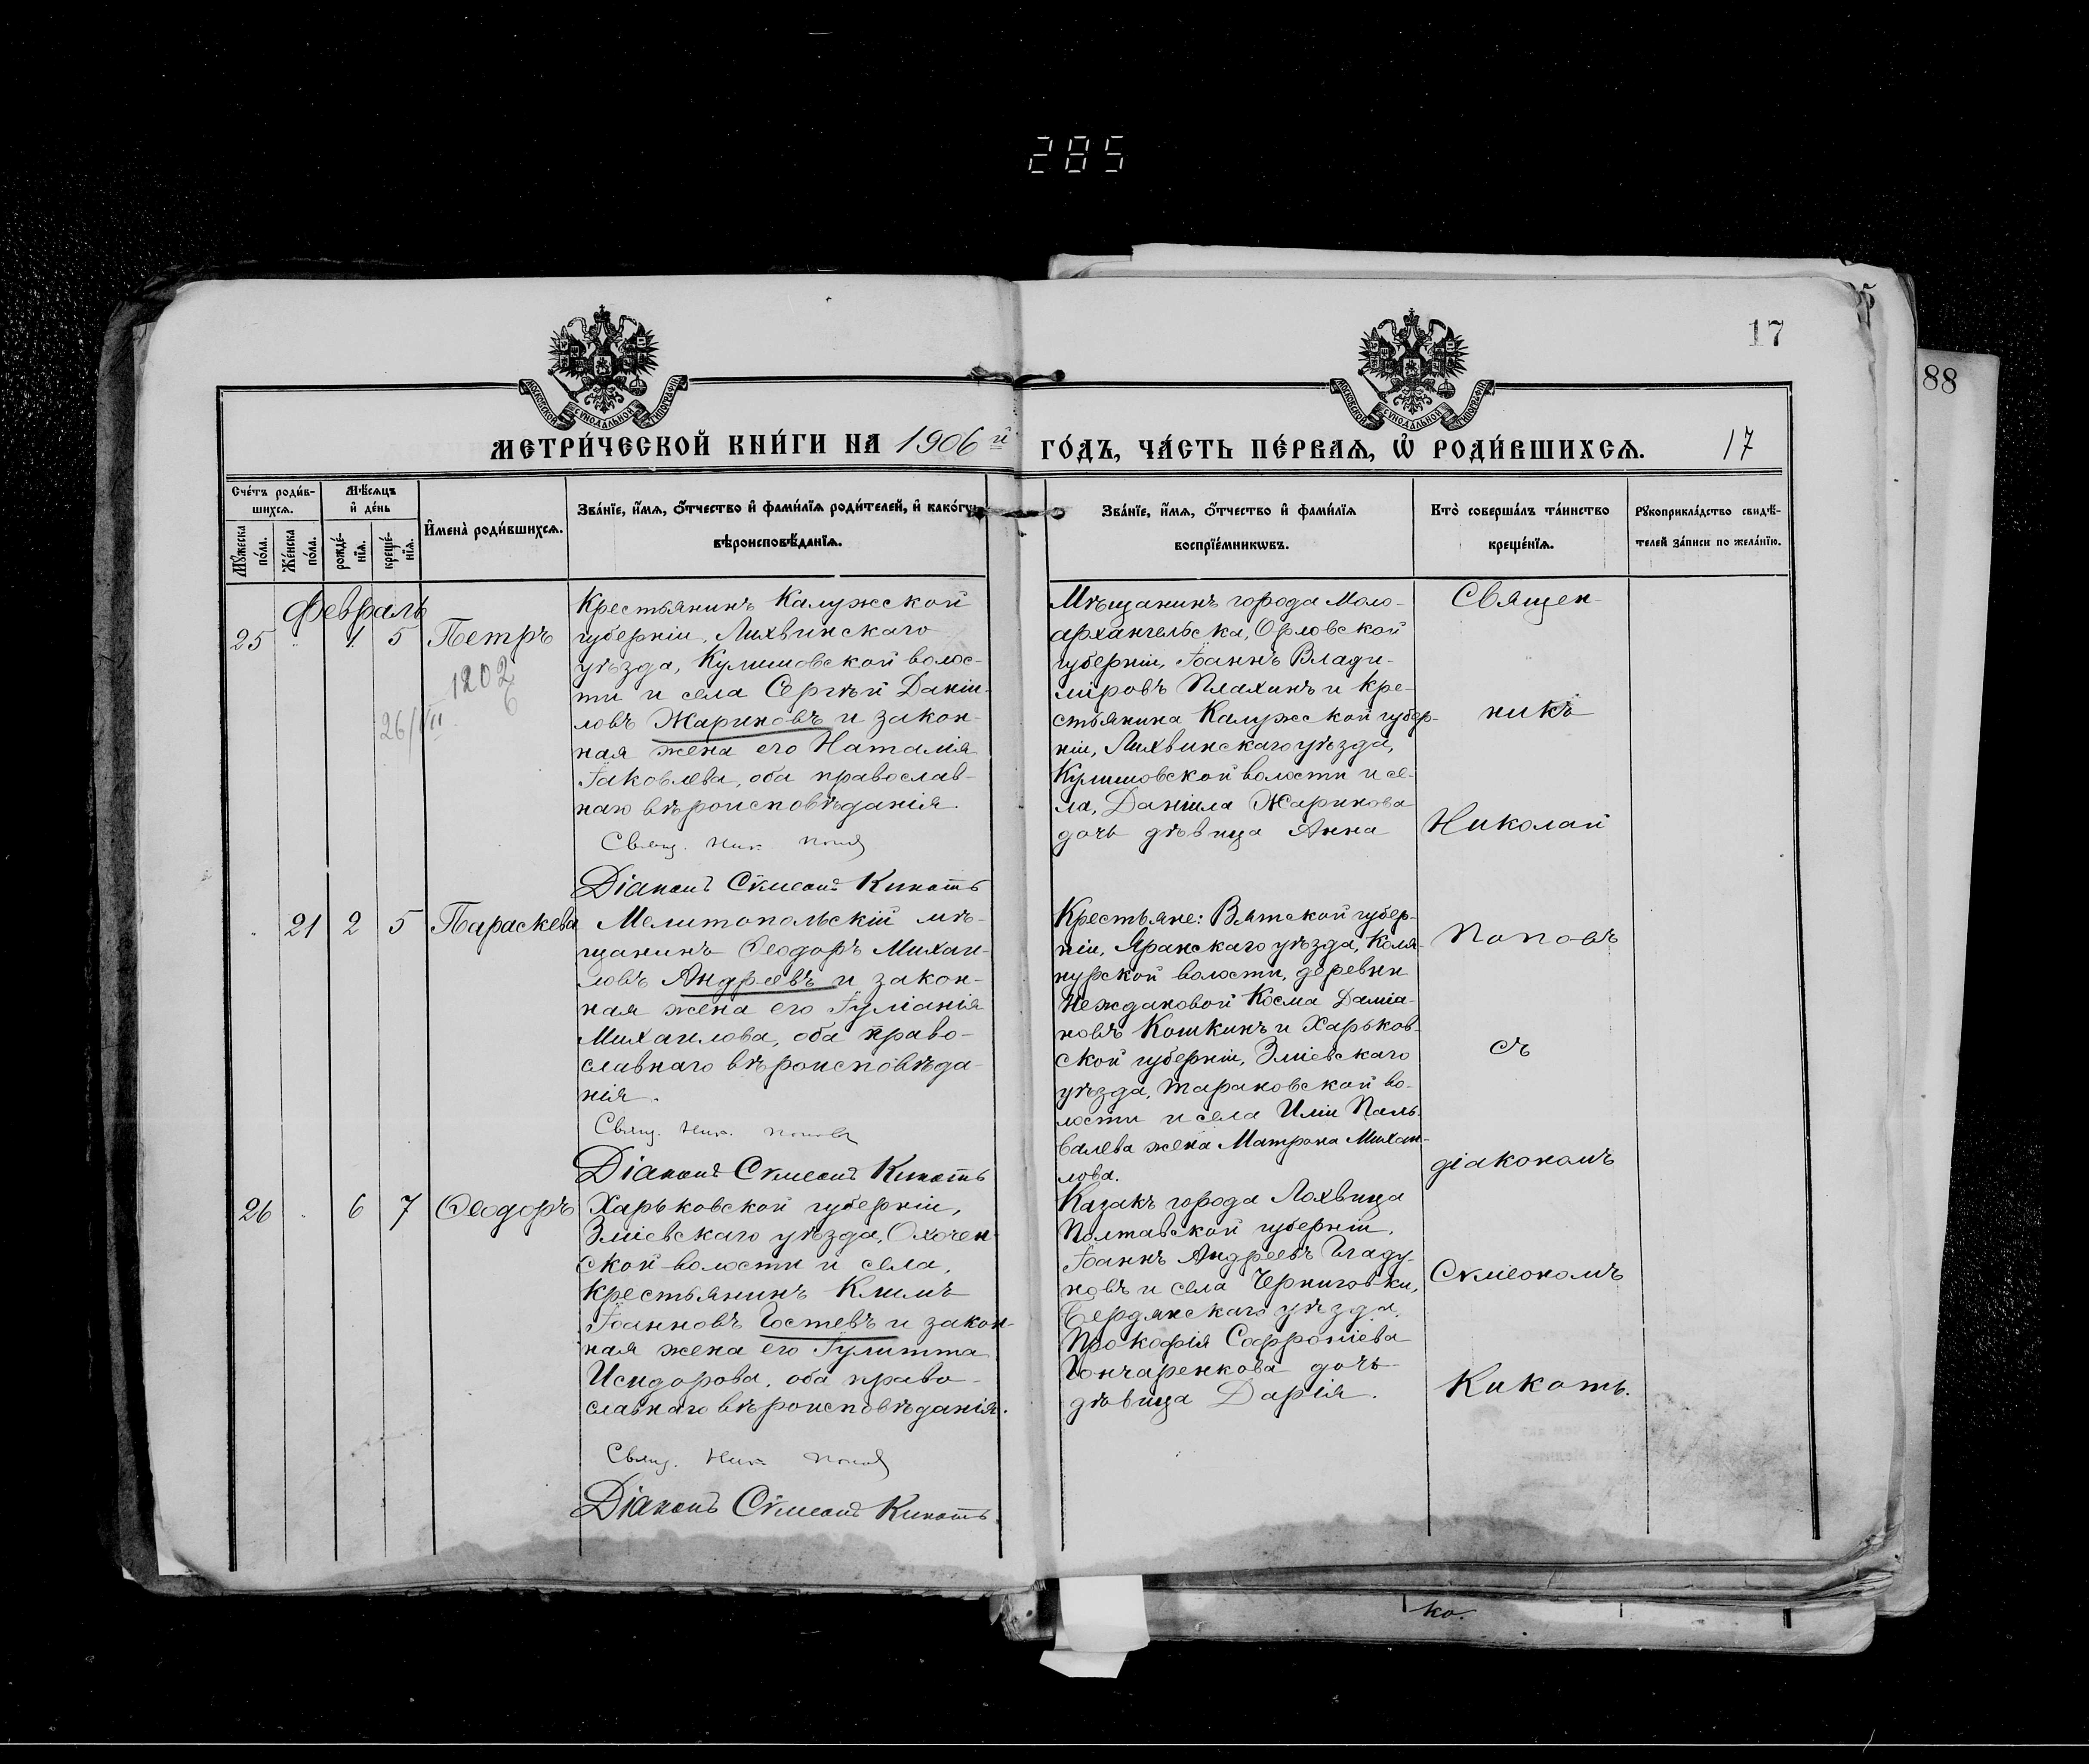 285
17
88
МЕТРИ́ЧЕСКОЙ КНИ́ГИ НА 1906й ГО́ДЪ, ЧА́СТЬ ПЕ́РВАЯ, Ѡ РОДИ́ВШИХСЯ. 17
Сче́тъ роди́в-
шихся.
Мꙋ́жеска по́ла.
Же́нска по́ла.
Мѣ́сяцъ
и де́нь
рожде́-
нїя.
креще́-
нїя.
И҆мена̀ роди́вшихся.
Зва́нїе, и҆́мя, ѻ҆́тчество и҆ фами́лїя роди́телей, и҆ како́гѡ
вѣроисповѣ́данїя.
Зва́нїе, и҆́мя, ѻ҆́тчество и҆ фами́лїя
воспрїе́мникѡвъ.
Кто̀ соверша́лъ та́инство
креще́нїя.
Рꙋкоприкла́дство свидѣ́-
телей за́писи по жела́нїю.
Февраль
25 " 1 5 Петръ
1202
6
26/VII
Крестьянинъ Калужской
губерніи, Лихвинскаго
уѣзда, Кулешовской волос-
ти и села Сергѣй Даніи-
ловъ Жариновъ и закон-
ная жена его Наталія
Іаковлева, оба православ-
наго вѣроисповѣданія.
Свящ. Ник. Попов
Діаконъ Сѵмеонъ Кикоть
Мѣщанинъ города Мало-
архангельска, Орловской
губерніи, Іоаннъ Влади-
міровъ Плахинъ и кре-
стьянина Калужской губер-
ніи, Лихвинскаго уѣзда,
Кулешовской волости и се-
ла, Даніила Жаринова
дочь дѣвица Анна
Священ-
никъ
Николай
Поповъ
съ
діакономъ
Сѵмеономъ
Кикоть.
" 21 2 5 Параскева
Мелитопольскій мѣ-
щанинъ Ѳеодоръ Михаи-
ловъ Андреевъ и закон-
ная жена его Іуліанія
Михаилова, оба право-
славнаго вѣроисповѣда-
нія.
Свящ. Ник. Попов
Діаконъ Сѵмеонъ Кикоть
Крестьяне: Вятской губер-
ніи, Яранскаго уѣзда, Коля-
нурской волости, деревни
Неждановой Косма Даміа-
новъ Кошкинъ и Харьков-
ской губерніи, Зміевскаго
уѣзда, Тарановской во-
лости и села Иліи Паль-
валева жена Матрона Михаи-
лова.
26 " 6 7 Ѳеодоръ
Харьковской губерніи,
Зміевскаго уѣзда, Охочен-
ской волости и села,
крестьянинъ Климъ
Іоанновъ Гостевъ и закон-
ная жена его Іулитта
Исидорова, оба право-
славнаго вѣроисповѣданія.
Свящ. Ник. Попов
Діаконъ Сѵмеонъ Кикоть
Казакъ города Лохвица
Полтавской губерніи,
Іоаннъ Андреевъ
новъ и села Черниговки,
Бердянскаго уѣзда,
Прокофія Софроніева
Гончаренкова дочь
дѣвица Дарія.
ко.